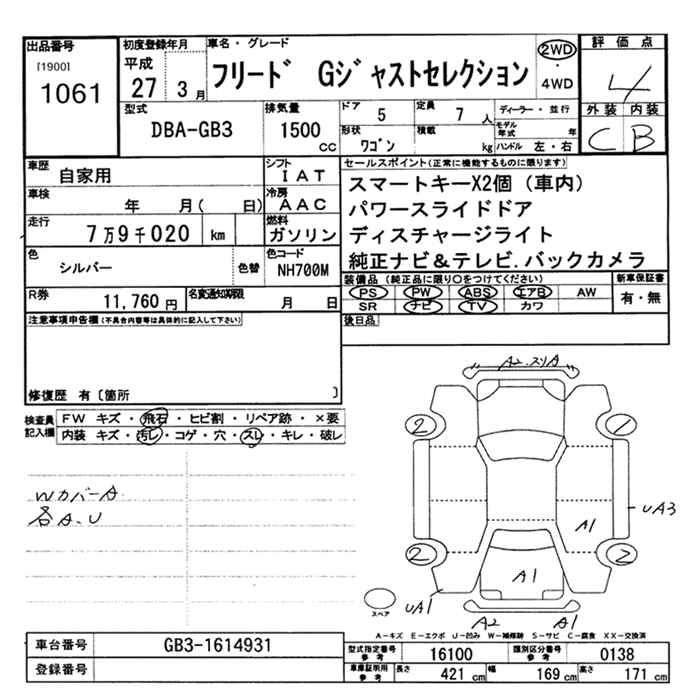 出品番号
[1900]
1061
初度登録年月
平成
27 3 月
車名・グレード
フリード Gジャストセレクション
2WD
・
4WD
評価点
4
外装 内装
C B
型式
DBA-GB3
排気量
1500 cc
ドア 5
定員 7 人
ディーラー・並行
形状 ワゴン
積載 kg
モデル年式 年
ハンドル 左・右
車歴
自家用
シフト
IAT
車検
年 月( 日)
冷房
AAC
走行
7万9千020 km
燃料
ガソリン
色
シルバー
色替
色コード
NH700M
R券
11,760 円
名変通知期限
月 日
セールスポイント(正常に機能するものに限ります)
スマートキーX2個(車内)
パワースライドドア
ディスチャージライト
純正ナビ&テレビ.バックカメラ
装備品(純正品に限り○をつけてください)
PS PW ABS エアB AW
SR ナビ TV カワ
新車保証書
有・無
後日品
注意事項申告欄(不具合内容等は具体的に記入して下さい)
修復歴 有〔箇所 〕
検査員
記入欄
FW キズ・飛石・ヒビ割・リペア跡・×要
内装 キズ・汚レ・コゲ・穴・スレ・キレ・破レ
WカバーA
各A.U
A2.スリA
2
1
UA3
A1
2
2
A1
スペア
UA1
A2
A1
A-キズ E-エクボ U-凹み W-補修跡 S-サビ C-腐食 XX-交換済
車台番号
GB3-1614931
登録番号
型式指定番号
参考
16100
類別区分番号
参考
0138
車庫証明用
参考
長さ 421 cm
幅 169 cm
高さ 171 cm